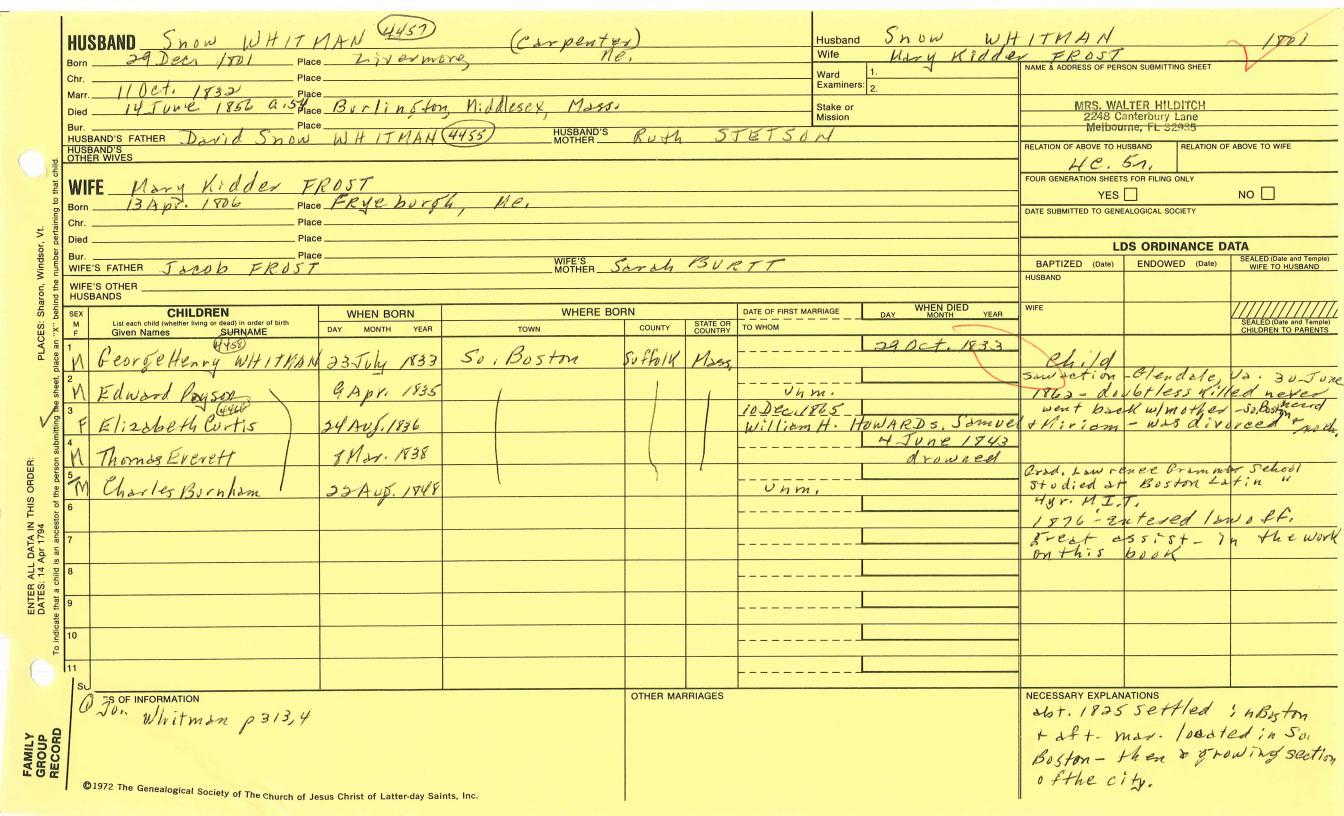 HUSBAND Snow WHITMAN 4457 (Carpenter)
Born 29 Decr 1801 Place Livermore, Me.
Chr. Place
Marr. 11 Oct. 1832 Place
Died 14 June 1856 a.54 Place Burlington, Middlesex, Mass.
Bur. Place
HUSBAND'S FATHER David Snow WHITMAN 4455 HUSBAND'S MOTHER Ruth STETSON
HUSBAND'S OTHER WIVES
WIFE Mary Kidder FROST
Born 13 Apr. 1806 Place Fryeburgh, Me.
Chr. Place
Died Place
Bur. Place
WIFE'S FATHER Jacob FROST WIFE'S MOTHER Sarah BURTT
WIFE'S OTHER HUSBANDS
Husband Snow WHITMAN 1801
Wife Mary Kidder FROST
Ward Examiners: 1. 2.
Stake or Mission
NAME & ADDRESS OF PERSON SUBMITTING SHEET
MRS. WALTER HILDITCH
2248 Canterbury Lane
Melbourne, FL 32935
RELATION OF ABOVE TO HUSBAND RELATION OF ABOVE TO WIFE
4c. 5r.
FOUR GENERATION SHEETS FOR FILING ONLY
YES NO
DATE SUBMITTED TO GENEALOGICAL SOCIETY
LDS ORDINANCE DATA
BAPTIZED (Date) ENDOWED (Date) SEALED (Date and Temple) WIFE TO HUSBAND
HUSBAND
WIFE
SEALED (Date and Temple) CHILDREN TO PARENTS
SEX M F
CHILDREN
List each child (whether living or dead) in order of birth
Given Names SURNAME
WHEN BORN DAY MONTH YEAR
WHERE BORN TOWN COUNTY STATE OR COUNTRY
DATE OF FIRST MARRIAGE
TO WHOM
WHEN DIED DAY MONTH YEAR
1 M George Henry WHITMAN 4458 23 July 1833 So. Boston Suffolk Mass. 29 Oct. 1833
Child
2 M Edward Payson 9 Apr. 1835 Unm.
saw action - Glendale, Va. 30 June
1862 - doubtless killed never heard
3 F Elizabeth Curtis 24 Aug. 1836 10 Dec. 1865
William H. HOWARD s. Samuel & Miriam - was divorced &
went back w/mother - So. Boston
4 M Thomas Everett 8 Mar. 1838 4 June 1843
drowned
5 M Charles Burnham 22 Aug. 1848 Unm.
Grad. Lawrence Grammar School
studied at Boston Latin "
4 yr. M.I.T.
1876 - entered law off.
Great assist - in the work
on this book
6
7
8
9
10
11
OF INFORMATION
Whitman p 313,4
OTHER MARRIAGES
NECESSARY EXPLANATIONS
abt. 1825 settled in Boston
+ aft. mar. located in So.
Boston - then a growing section
of the city.
FAMILY GROUP RECORD
ENTER ALL DATA IN THIS ORDER:
DATES: 14 Apr 1794
PLACES: Sharon, Windsor, Vt.
To indicate that a child is an ancestor of the person submitting the sheet, place an "X" behind the number pertaining to that child.
©1972 The Genealogical Society of The Church of Jesus Christ of Latter-day Saints, Inc.